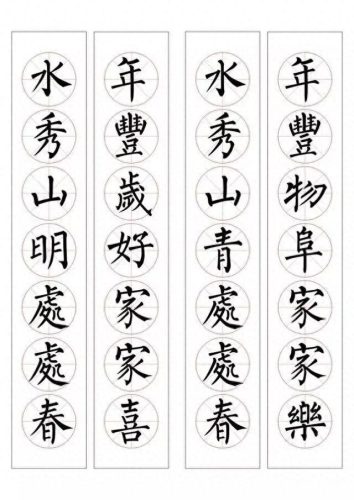 年豐物阜家家樂
水秀山青處處春
年豐歲好家家喜
水秀山明處處春